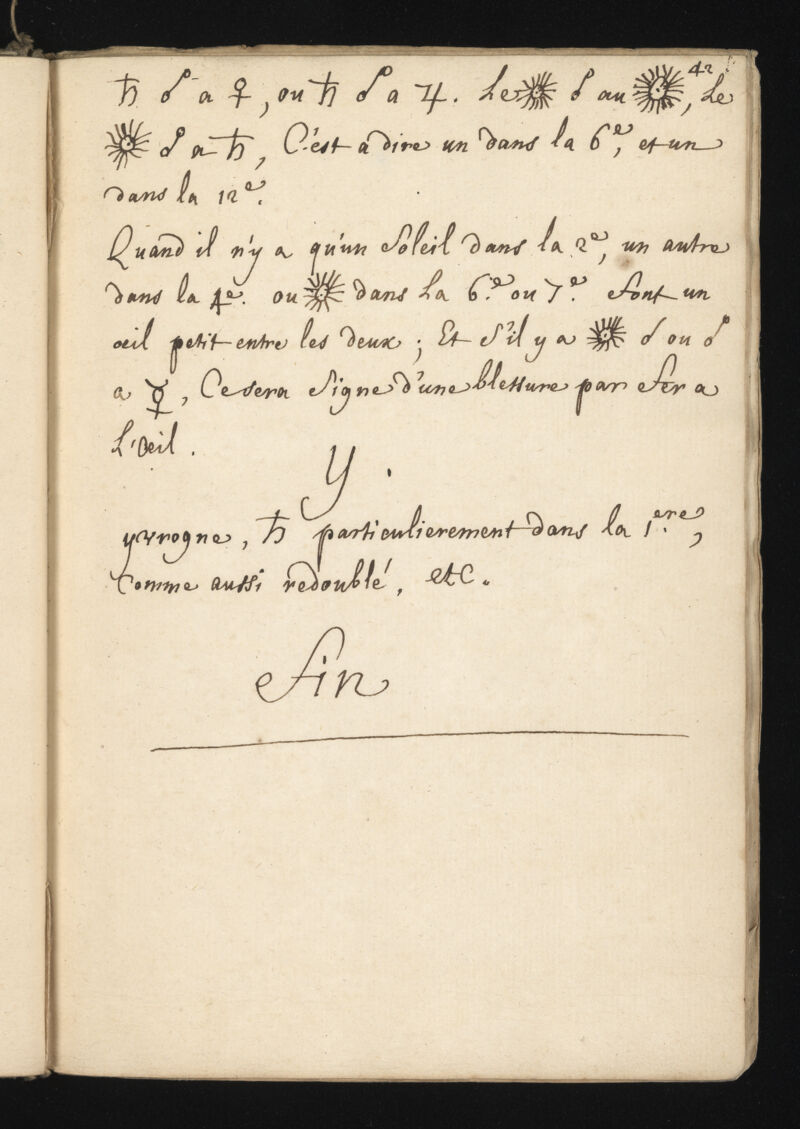 42
♄ ☍ a ♀, ou ♄ ☍ a ♃. Le ☉ ☌ au ☉, Le
☉ ☍ a ♄, C'est a dire un dans la 6.e, et un
dans la 12e.
Quand il n'y a qu'un Soleil dans la 2e, un autre
dans la 4e. ou ☉ dans La 6.e ou 7.e font un
œil petit entre les deux ; Et s'il y a ☉ ☌ ou ☍
a ☿, Ce sera Signe d'une blessure par fer a
L'Œil.
Y.
yvrogne, ♄ particulierement dans la 1.ere,
Comme aussi redoublé, etc.
Fin